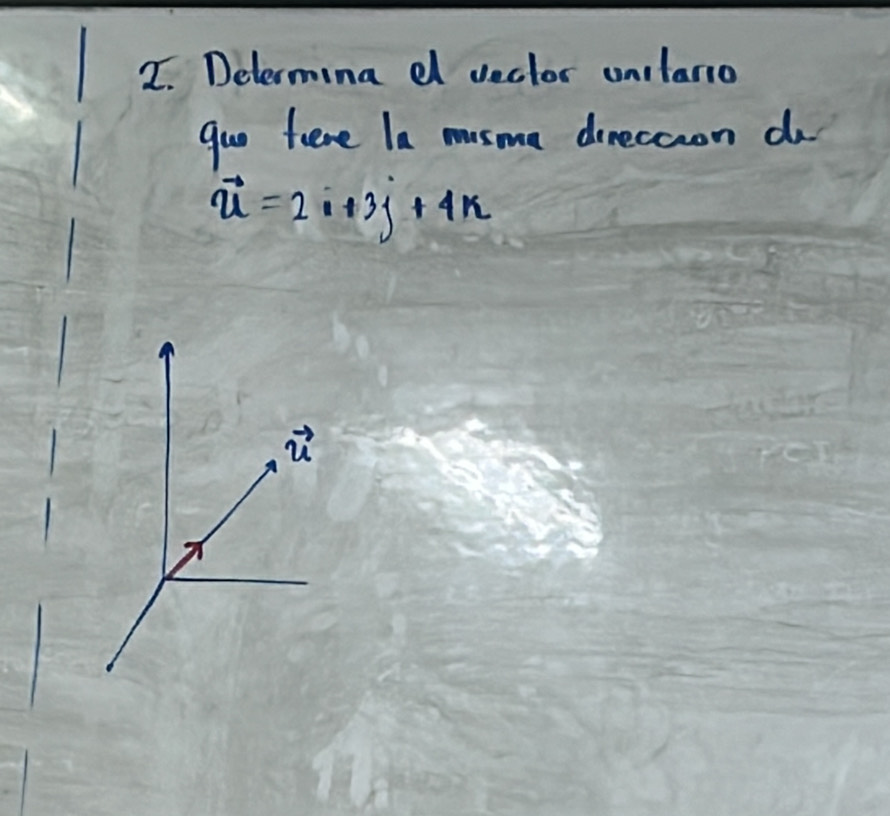 2. Determina el vector unitario
que tiene la misma direccion de
u⃗ = 2i+3j+4k
u⃗